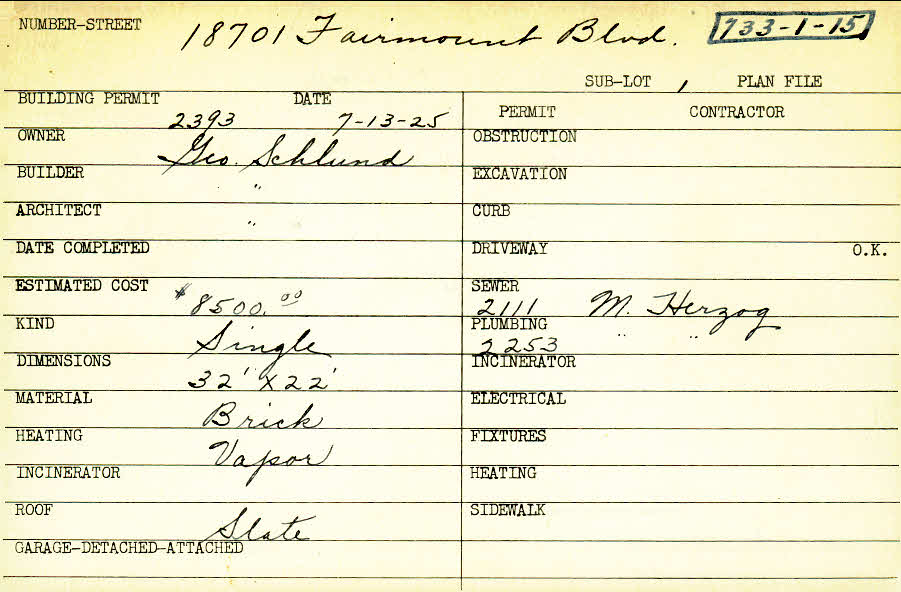 NUMBER-STREET 18701 Fairmount Blvd. 733-1-15
SUB-LOT , PLAN FILE
BUILDING PERMIT DATE
2393 7-13-25
PERMIT CONTRACTOR
OWNER Geo. Schlund
BUILDER "
ARCHITECT "
DATE COMPLETED
ESTIMATED COST $8500.00
KIND Single
DIMENSIONS 32' X 22'
MATERIAL Brick
HEATING Vapor
INCINERATOR
ROOF Slate
GARAGE-DETACHED-ATTACHED
OBSTRUCTION
EXCAVATION
CURB
DRIVEWAY O.K.
SEWER
2111 M. Herzog
PLUMBING " "
2253
INCINERATOR
ELECTRICAL
FIXTURES
HEATING
SIDEWALK